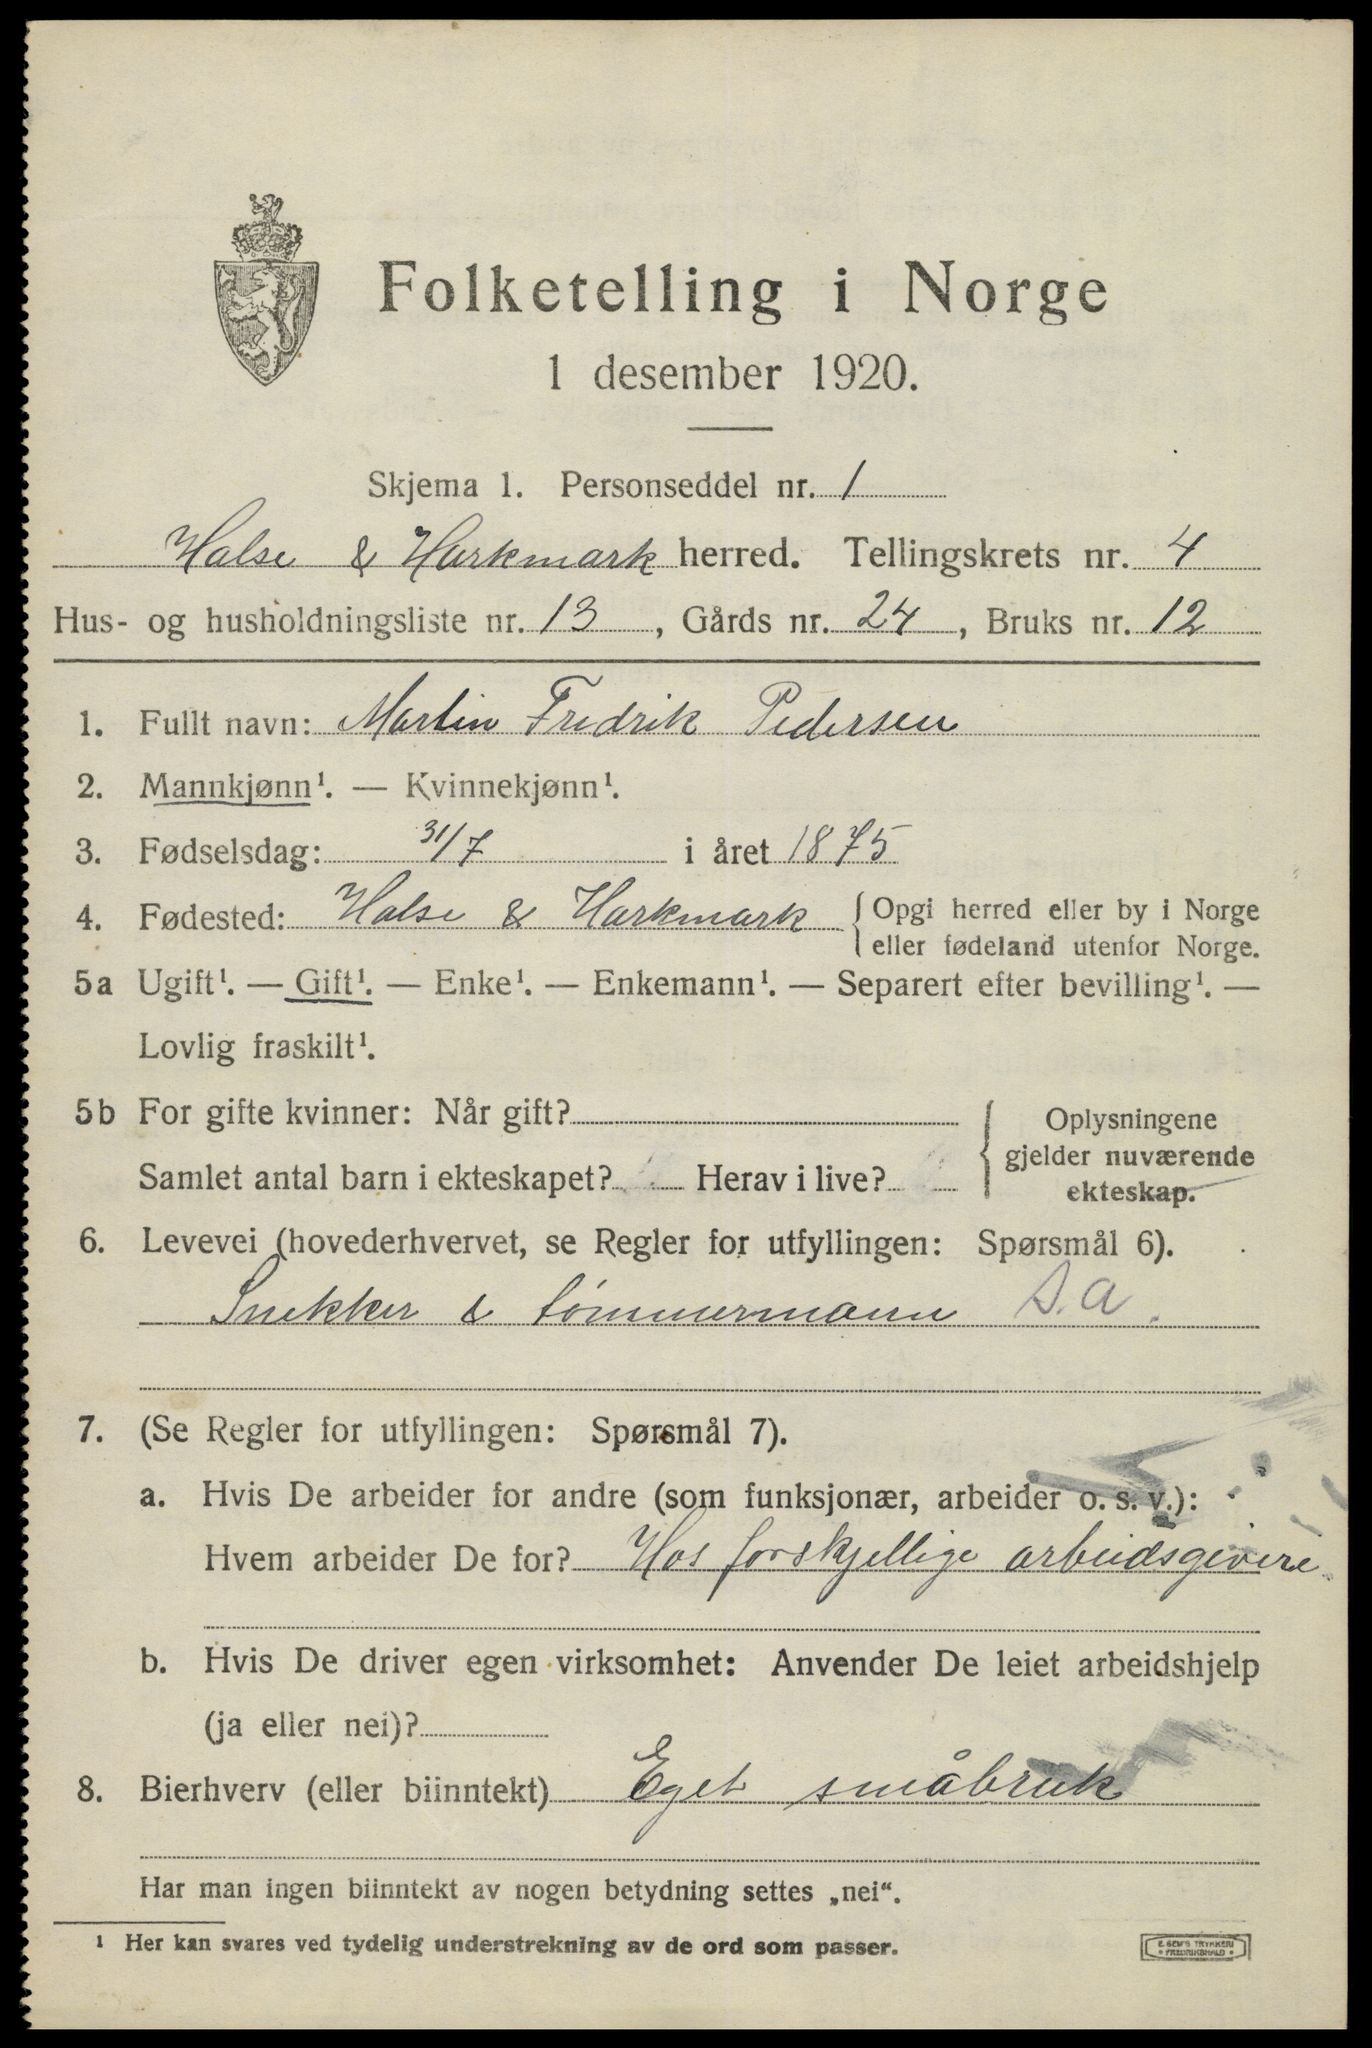 Folketelling i Norge
1 desember 1920.
Skjema 1. Personseddel nr. 1
Halse & Harkmark herred. Tellingskrets nr. 4
Hus- og husholdningsliste nr. 13, Gårds nr. 24, Bruks nr. 12
1. Fullt navn: Martin Fredrik Pedersen
2. Mannkjønn¹. — Kvinnekjønn¹.
3. Fødselsdag: 31/7 i året 1875
4. Fødested: Halse & Harkmark { Opgi herred eller by i Norge
eller fødeland utenfor Norge.
5a Ugift¹. — Gift¹. — Enke¹. — Enkemann¹. — Separert efter bevilling¹. —
Lovlig fraskilt¹.
5b For gifte kvinner: Når gift?
Samlet antal barn i ekteskapet? Herav i live?
Oplysningene
gjelder nuværende
ekteskap.
6. Levevei (hovederhvervet, se Regler for utfyllingen: Spørsmål 6).
Snekker & tømmermann S.a.
7. (Se Regler for utfyllingen: Spørsmål 7).
a. Hvis De arbeider for andre (som funksjonær, arbeider o. s. v.):
Hvem arbeider De for? Hos forskjellige arbeidsgivere.
b. Hvis De driver egen virksomhet: Anvender De leiet arbeidshjelp
(ja eller nei)?
8. Bierhverv (eller biinntekt) Eget småbruk
Har man ingen biinntekt av nogen betydning settes „nei“.
¹ Her kan svares ved tydelig understrekning av de ord som passer.
E. SEM'S TRYKKERI
FREDRIKSHALD